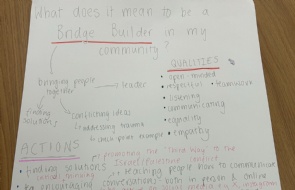 What does it mean to be a
Bridge Builder in my
community?
QUALITIES
• open-minded
• respectful • teamwork
• listening
• communicating
• equality
• empathy
bringing people
together
leader
finding
solutions
conflicting ideas
addressing trauma
ACTIONS
promoting the "third way" to the
finding solutions
teaching people how to communicate
encouraging conversations both in person & online